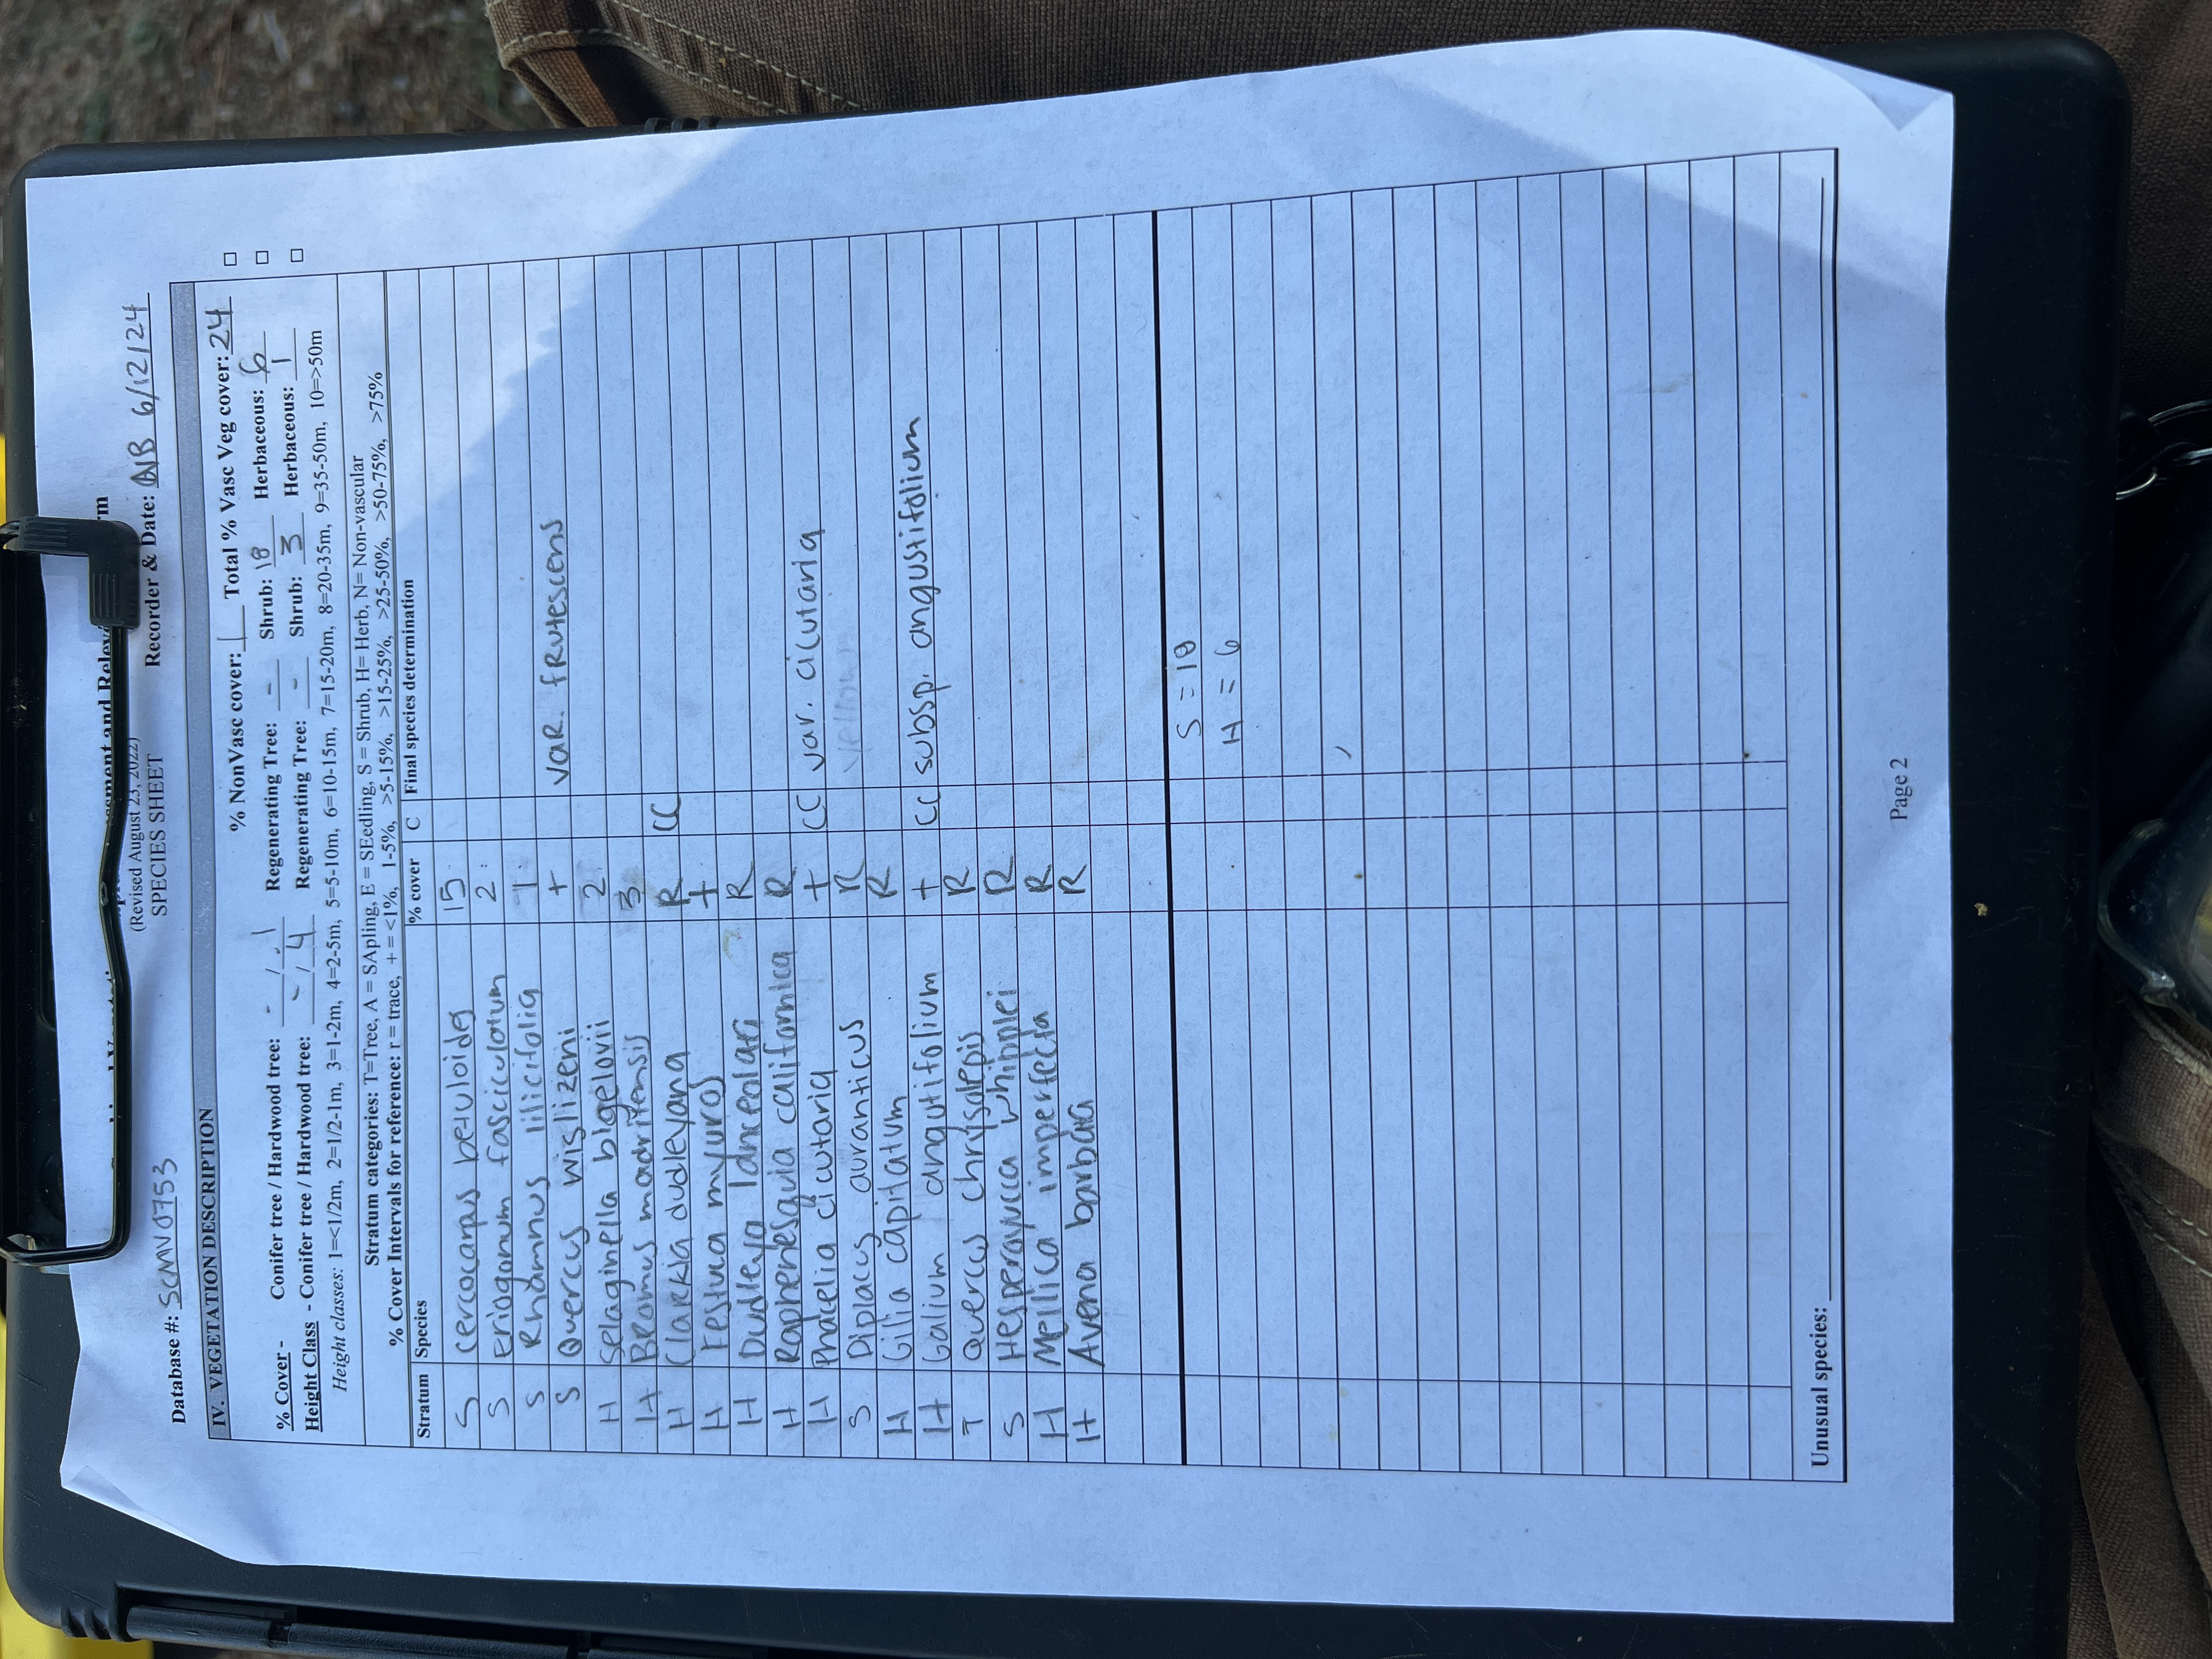 (Revised August 23, 2022)
SPECIES SHEET
Database #: SCMV0753 Recorder & Date: 6/12/24
IV. VEGETATION DESCRIPTION
% NonVasc cover: 1 Total % Vasc Veg cover: 24 □
% Cover - Conifer tree / Hardwood tree: - / .1 Regenerating Tree: - Shrub: 18 Herbaceous: 6 □
Height Class - Conifer tree / Hardwood tree: - / 4 Regenerating Tree: - Shrub: 3 Herbaceous: 1 □
Height classes: 1=<1/2m, 2=1/2-1m, 3=1-2m, 4=2-5m, 5=5-10m, 6=10-15m, 7=15-20m, 8=20-35m, 9=35-50m, 10=>50m
Stratum categories: T=Tree, A = SApling, E = SEedling, S = Shrub, H= Herb, N= Non-vascular
% Cover Intervals for reference: r = trace, + = <1%, 1-5%, >5-15%, >15-25%, >25-50%, >50-75%, >75%
Stratum Species % cover C Final species determination
S Cercocarpus betuloides 15
S Eriogonum fasciculatum 2
S Rhamnus ilicifolia 1
S Quercus wislizeni + var. frutescens
H Selaginella bigelovii 2
H Bromus madritensis 3
H Clarkia dudleyana R CC
H Festuca myuros +
H Dudleya lanceolata R
H Raphenesquia californica R
H Phacelia cicutaria + CC var. cicutaria
S Diplacus auranticus R yellow
H Gilia capitatum R
H Galium angutifolium + CC subsp. angustifolium
T Quercus chrysolepis R
S Hesperoyucca whipplei R
H Mellica imperfecta R
H Avena barbata R
S = 18
H = 6
Unusual species:
Page 2